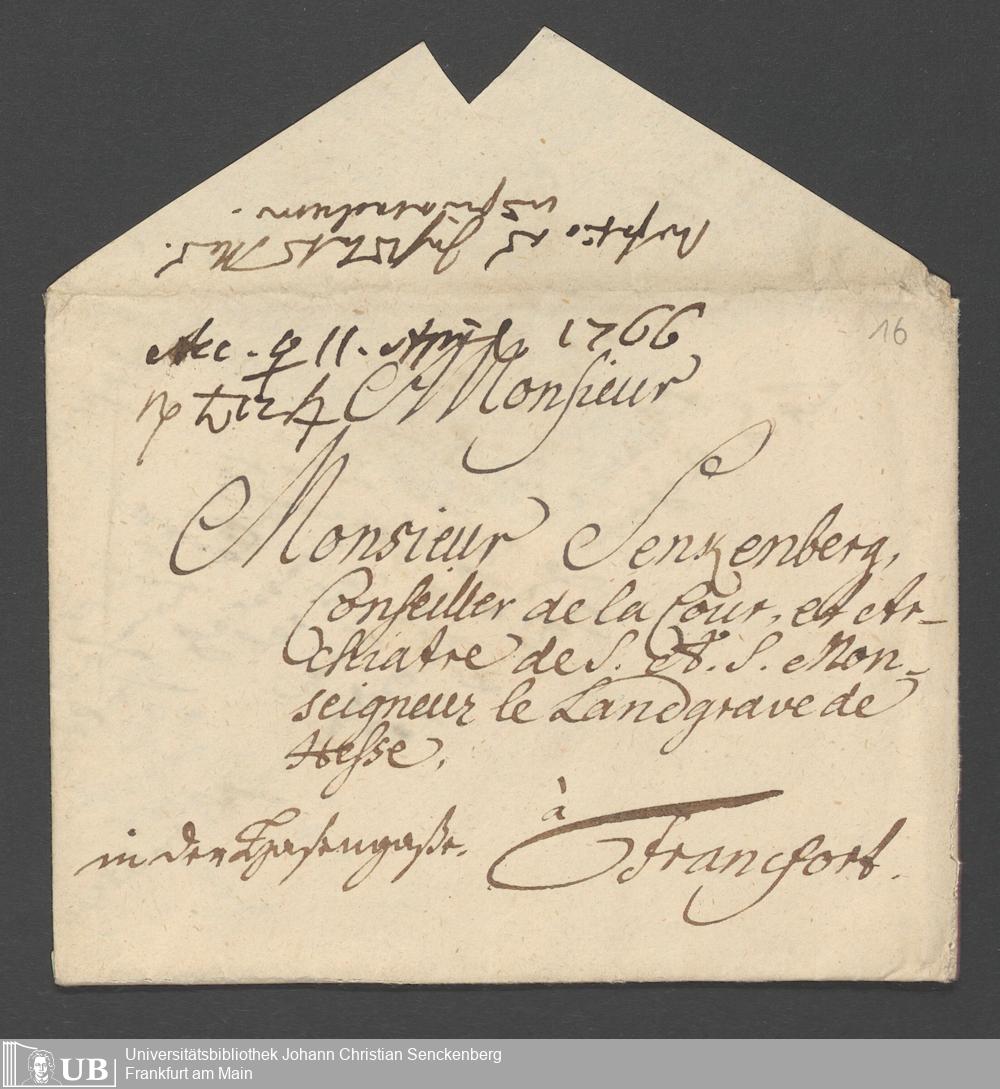 Acc. ♀ 11. April 1766
Monsieur
Monsieur Senkenberg,
Conseiller de la Cour, et Ar-
chiatre de S. A. S. Mon-
seigneur le Landgrave de
Hesse.
à
in der Hasengaße. Francfort.
16
UB Universitätsbibliothek Johann Christian Senckenberg
Frankfurt am Main